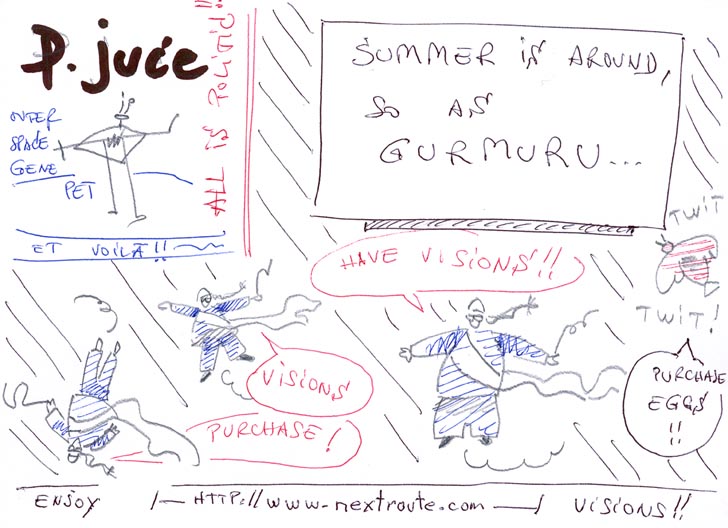 P. juce
OUTER
SPACE
GENE
PET
ET VOILÀ!!
ALL IS POLITIC!!
SUMMER IS AROUND,
SO AS
GURMURU...
HAVE VISIONS!!
TWIT
TWIT!
VISIONS
PURCHASE!
PURCHASE
EGGS
!!
ENJOY /— HTTP://www-nextroute.com —/ VISIONS!!